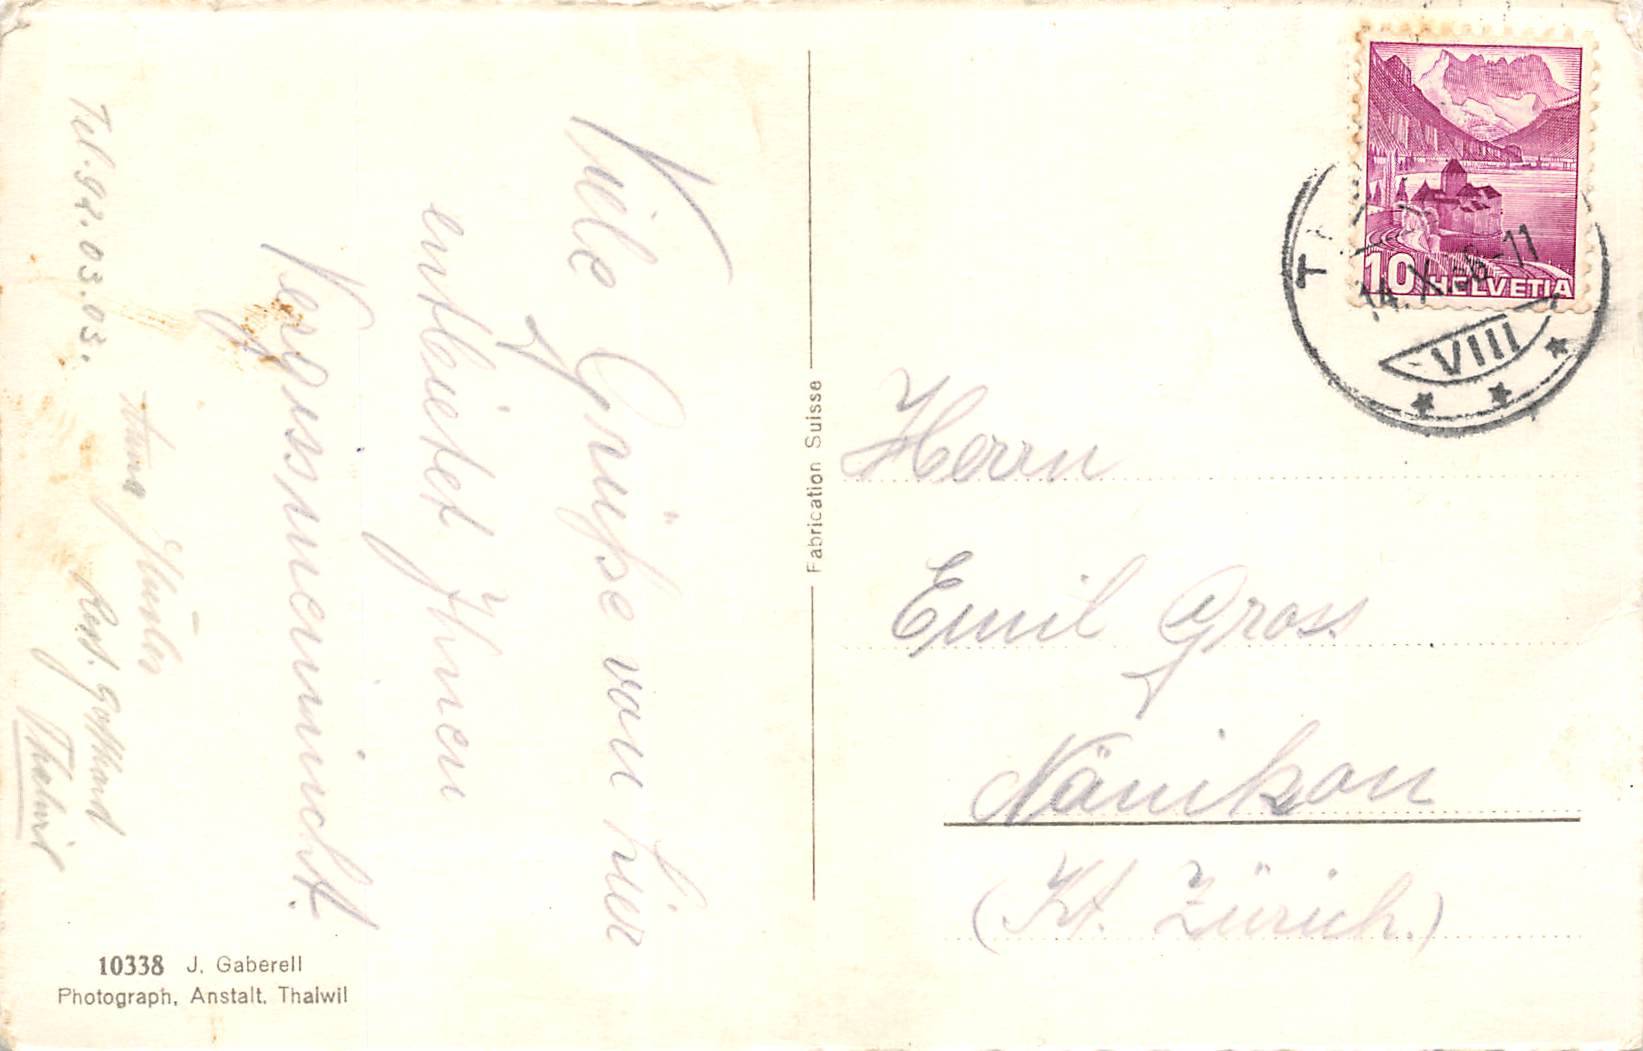 Viele Grüsse von hier
entbietet Ihnen
Vergissmeinnicht.
Tel. 92.03.03.
Rest. Gotthard
Thalwil
10338 J. Gaberell
Photograph. Anstalt. Thalwil
Fabrication Suisse
10 HELVETIA
-11
VIII
Herrn
Emil Gross
Nänikon
(Kt. Zürich.)